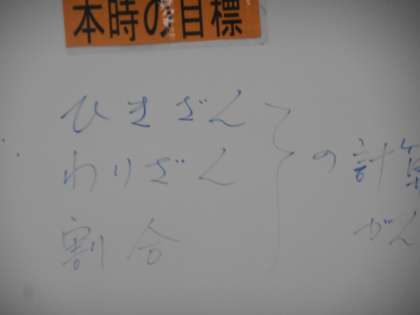 本時の目標
ひきざん
わりざん の計算
割合 がん